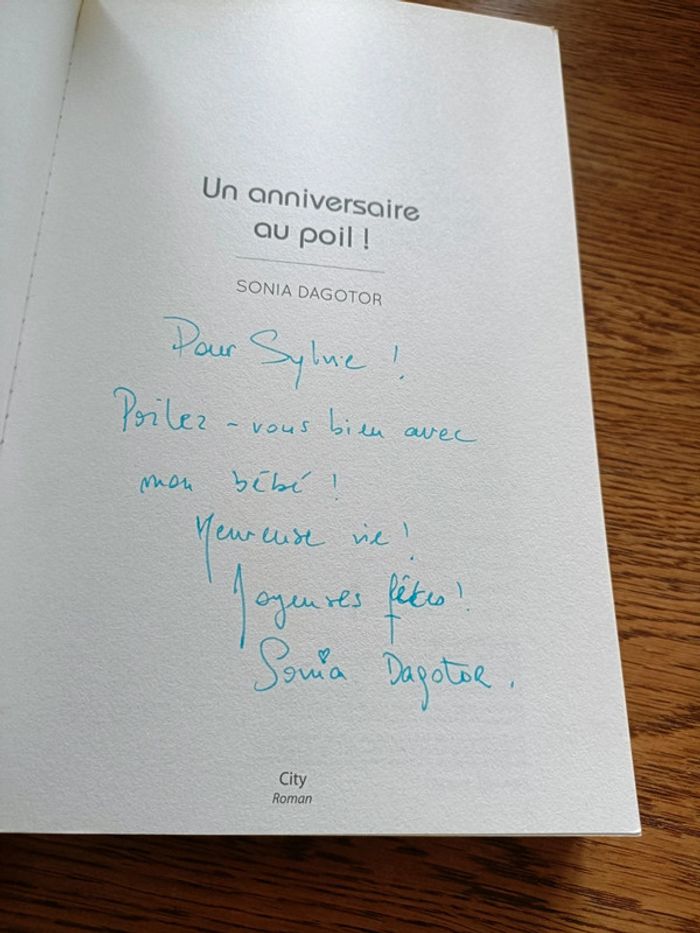 Un anniversaire
au poil !
SONIA DAGOTOR
Pour Sylvie !
Poilez-vous bien avec
mon bébé !
Heureuse vie !
Joyeuses fêtes !
Sonia Dagotor.
City
Roman